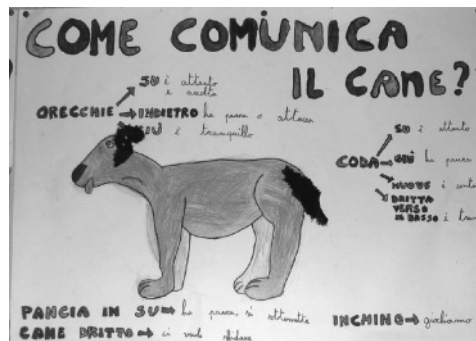 COME COMUNICA
IL CANE?
ORECCHIE
SU è attento
e ascolta
INDIETRO ha paura o attacca
GIÙ è tranquillo
CODA
SU è attento
GIÙ ha paura
MUOVE è conte
DRITTA
VERSO
IL BASSO è tran
PANCIA IN SU → ha paura, si sottomette
CANE DRITTO → ci vuole sfidare
INCHINO → giochiamo